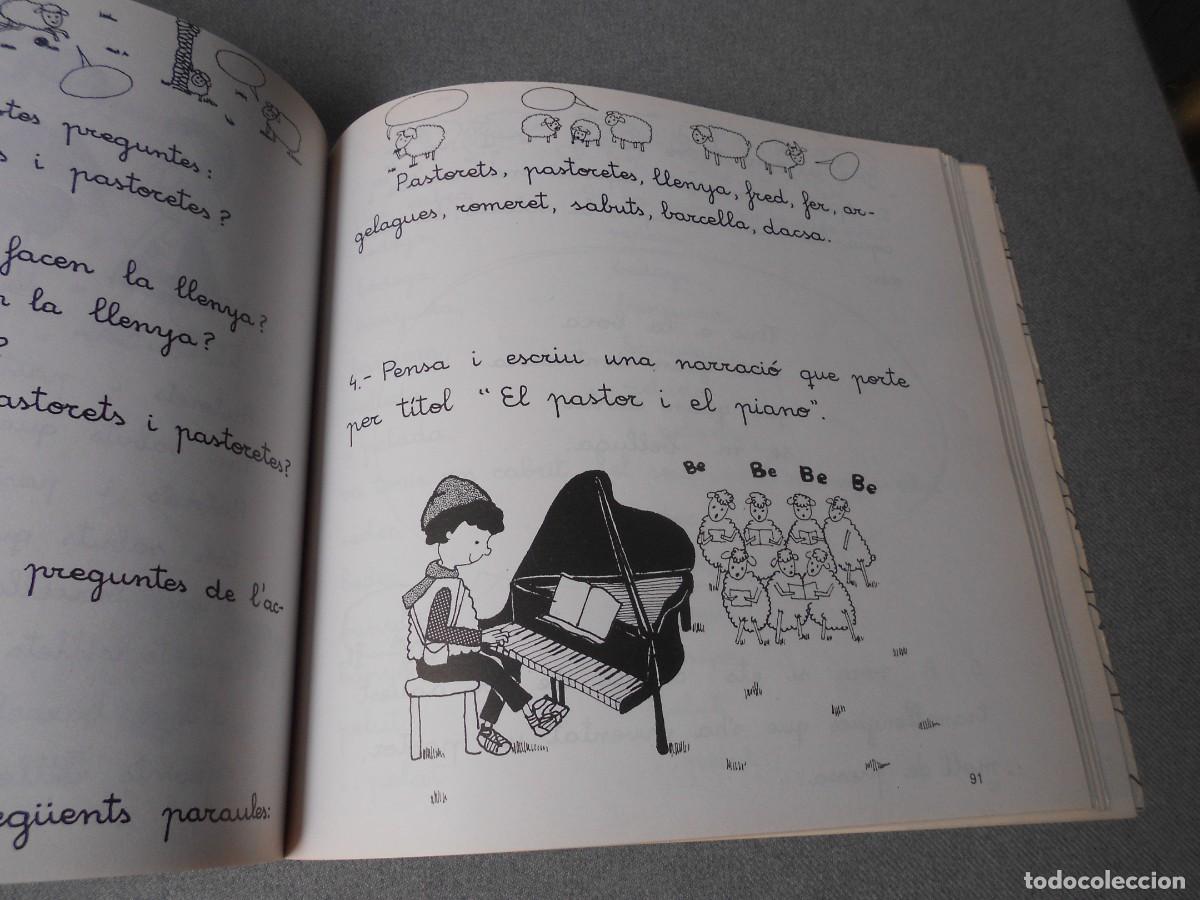 preguntes:
i pastoretes?
facen la llenya?
la llenya?
?
pastorets i pastoretes?
preguntes de l'ac-
següents paraules:
Pastorets, pastoretes, llenya, fred, fer, ar-
gelagues, romeret, sabuts, barcella, dacsa.
4.- Pensa i escriu una narració que porte
per títol "El pastor i el piano".
Be Be Be Be
91
todocoleccion